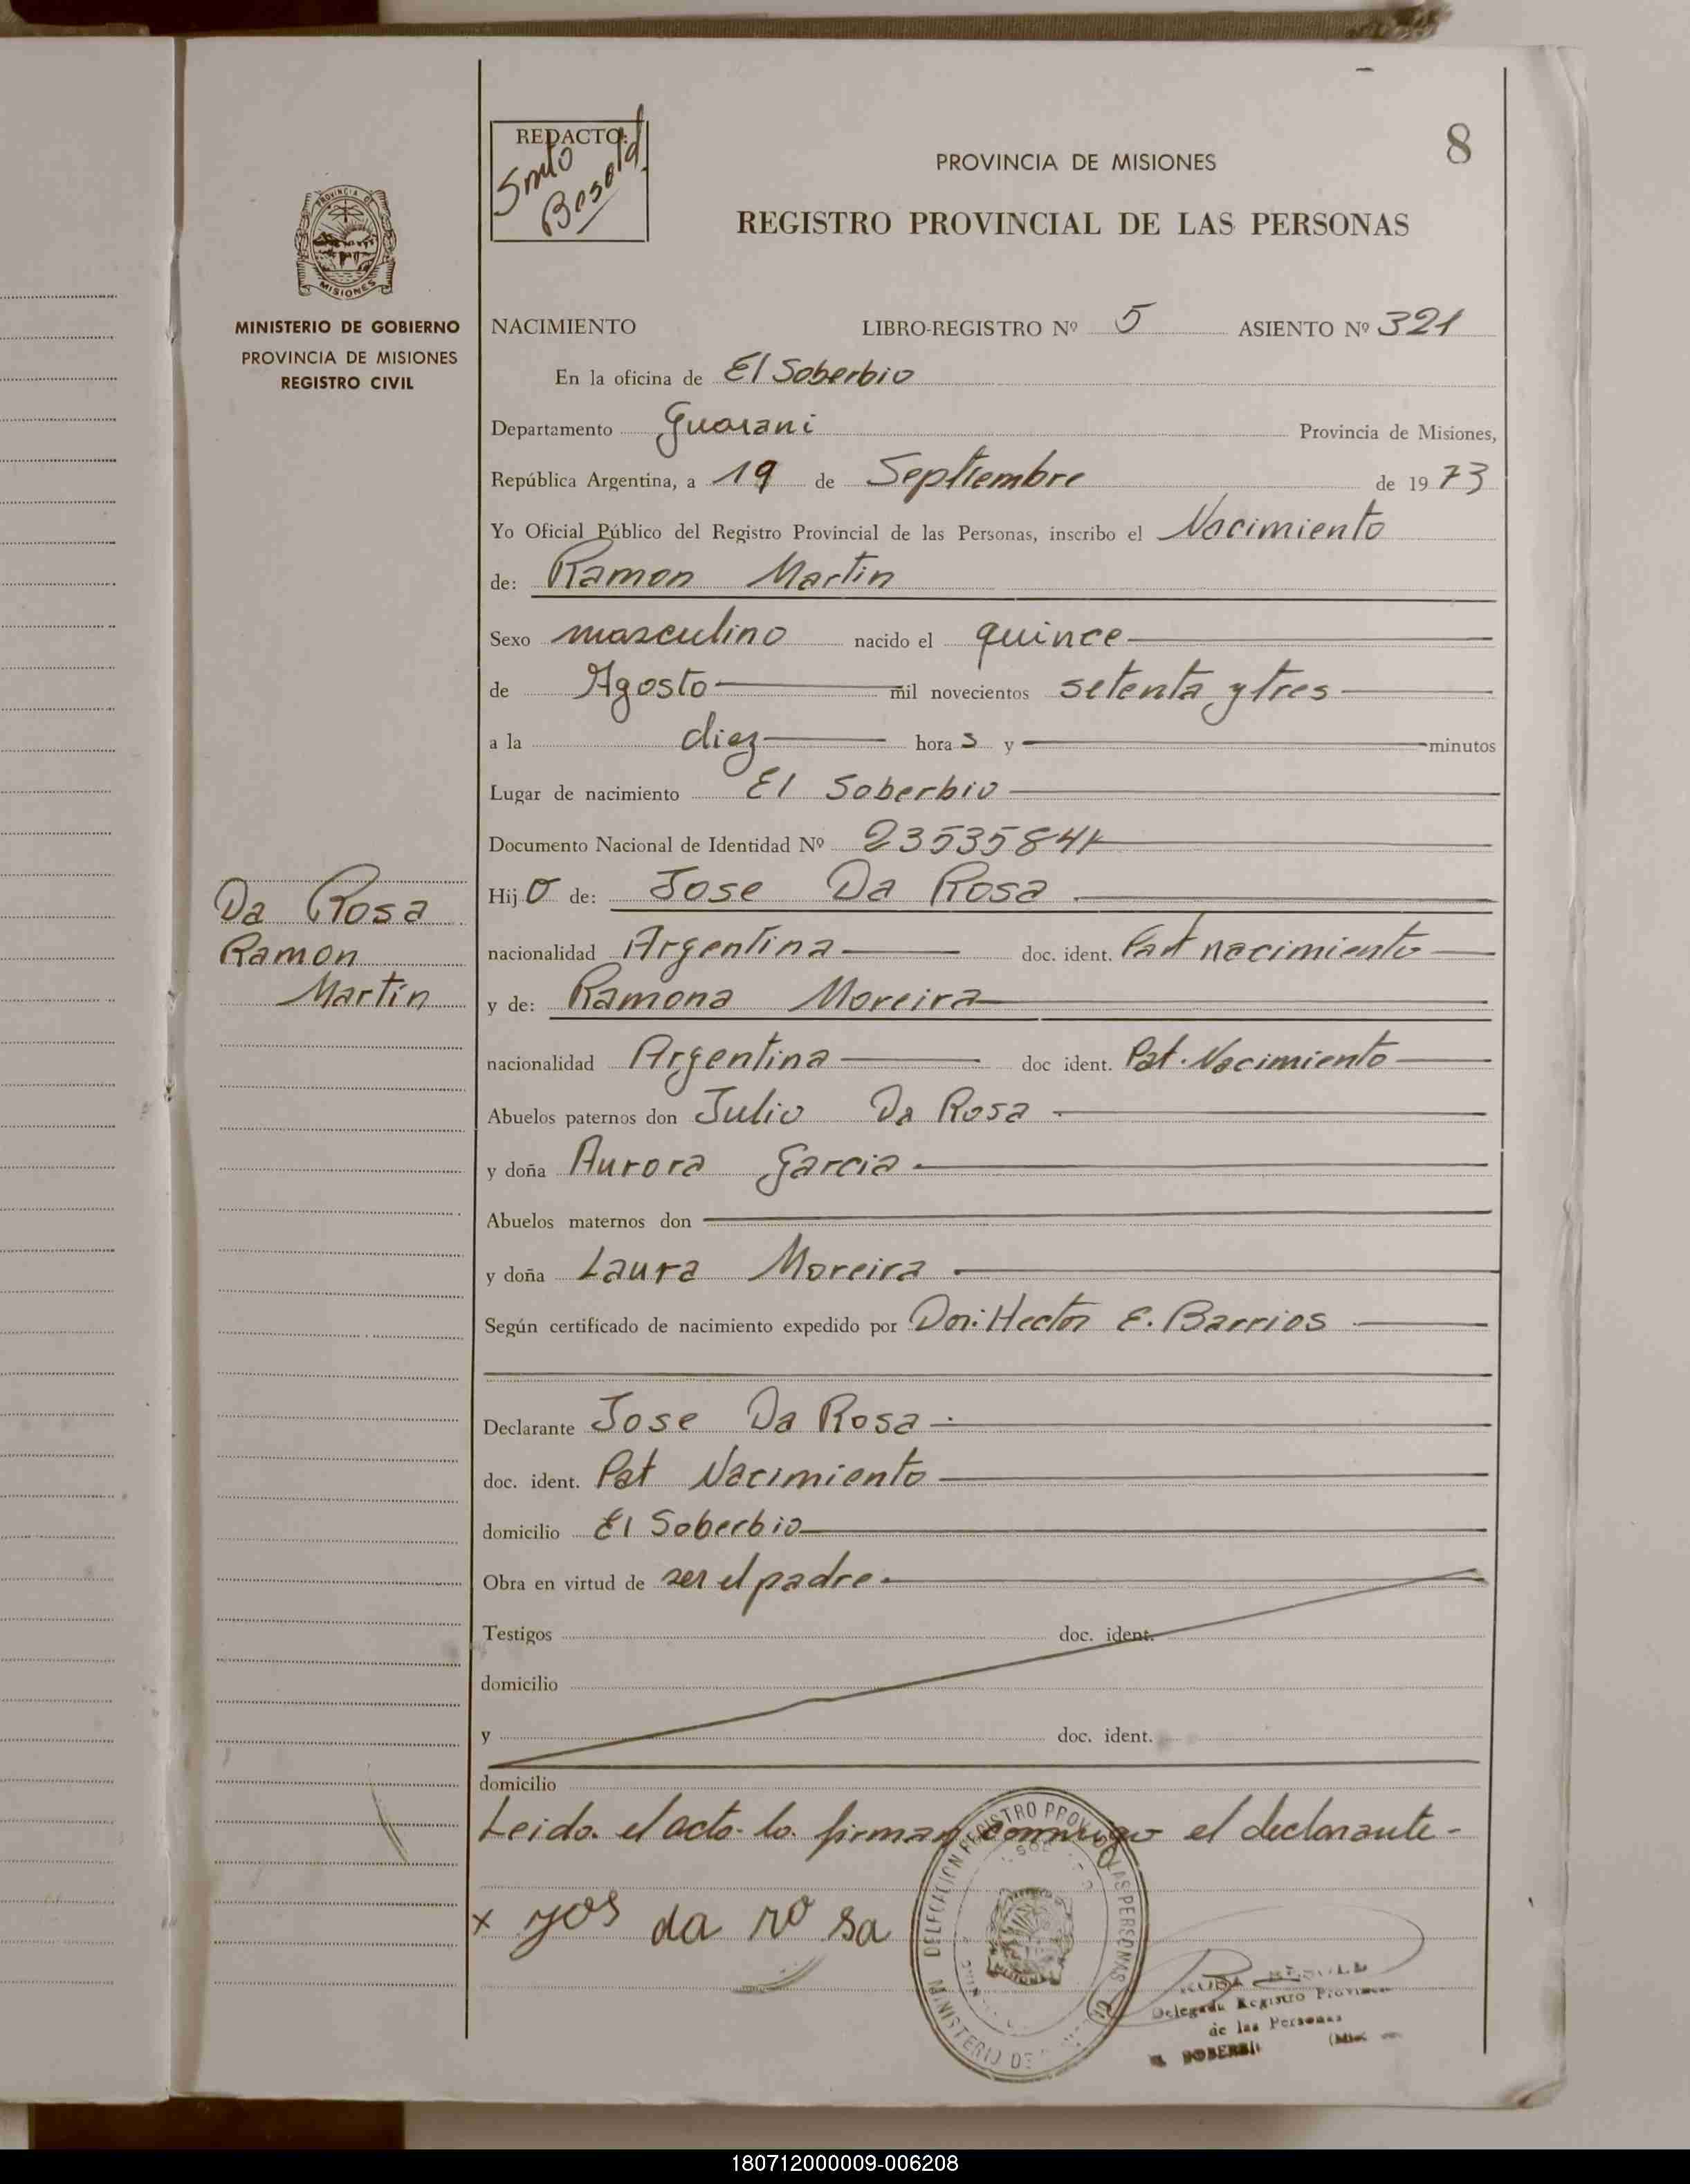 8
REDACTO:
PROVINCIA DE MISIONES
REGISTRO PROVINCIAL DE LAS PERSONAS
PROVINCIA DE
MISIONES
MINISTERIO DE GOBIERNO
PROVINCIA DE MISIONES
REGISTRO CIVIL
NACIMIENTO LIBRO-REGISTRO Nº 5 ASIENTO Nº 321
En la oficina de El Soberbio
Departamento Guarani Provincia de Misiones,
República Argentina, a 19 de Septiembre de 1973
Yo Oficial Público del Registro Provincial de las Personas, inscribo el Nacimiento
de: Ramon Martin
Sexo masculino nacido el quince
de Agosto mil novecientos setenta y tres
a la diez hora s y minutos
Lugar de nacimiento El Soberbio
Documento Nacional de Identidad Nº 23535841
Hijo de: Jose Da Rosa
nacionalidad Argentina doc. ident. Part nacimiento
y de: Ramona Moreira
nacionalidad Argentina doc ident. Pat. Nacimiento
Abuelos paternos don Julio Da Rosa
y doña Aurora Garcia
Abuelos maternos don
y doña Laura Moreira
Según certificado de nacimiento expedido por Hector E. Barrios
Declarante Jose Da Rosa
doc. ident. Pat Nacimiento
domicilio El Soberbio
Obra en virtud de ser el padre
Testigos doc. ident.
domicilio
y doc. ident.
domicilio
Leido el acto lo firman conmigo el declarante-
x yos da ro sa
Da Rosa
Ramon
Martin
DELEGACION REGISTRO PROV. DE LAS PERSONAS
MINISTERIO DE
Delegada Registro
de las Personas
180712000009-006208